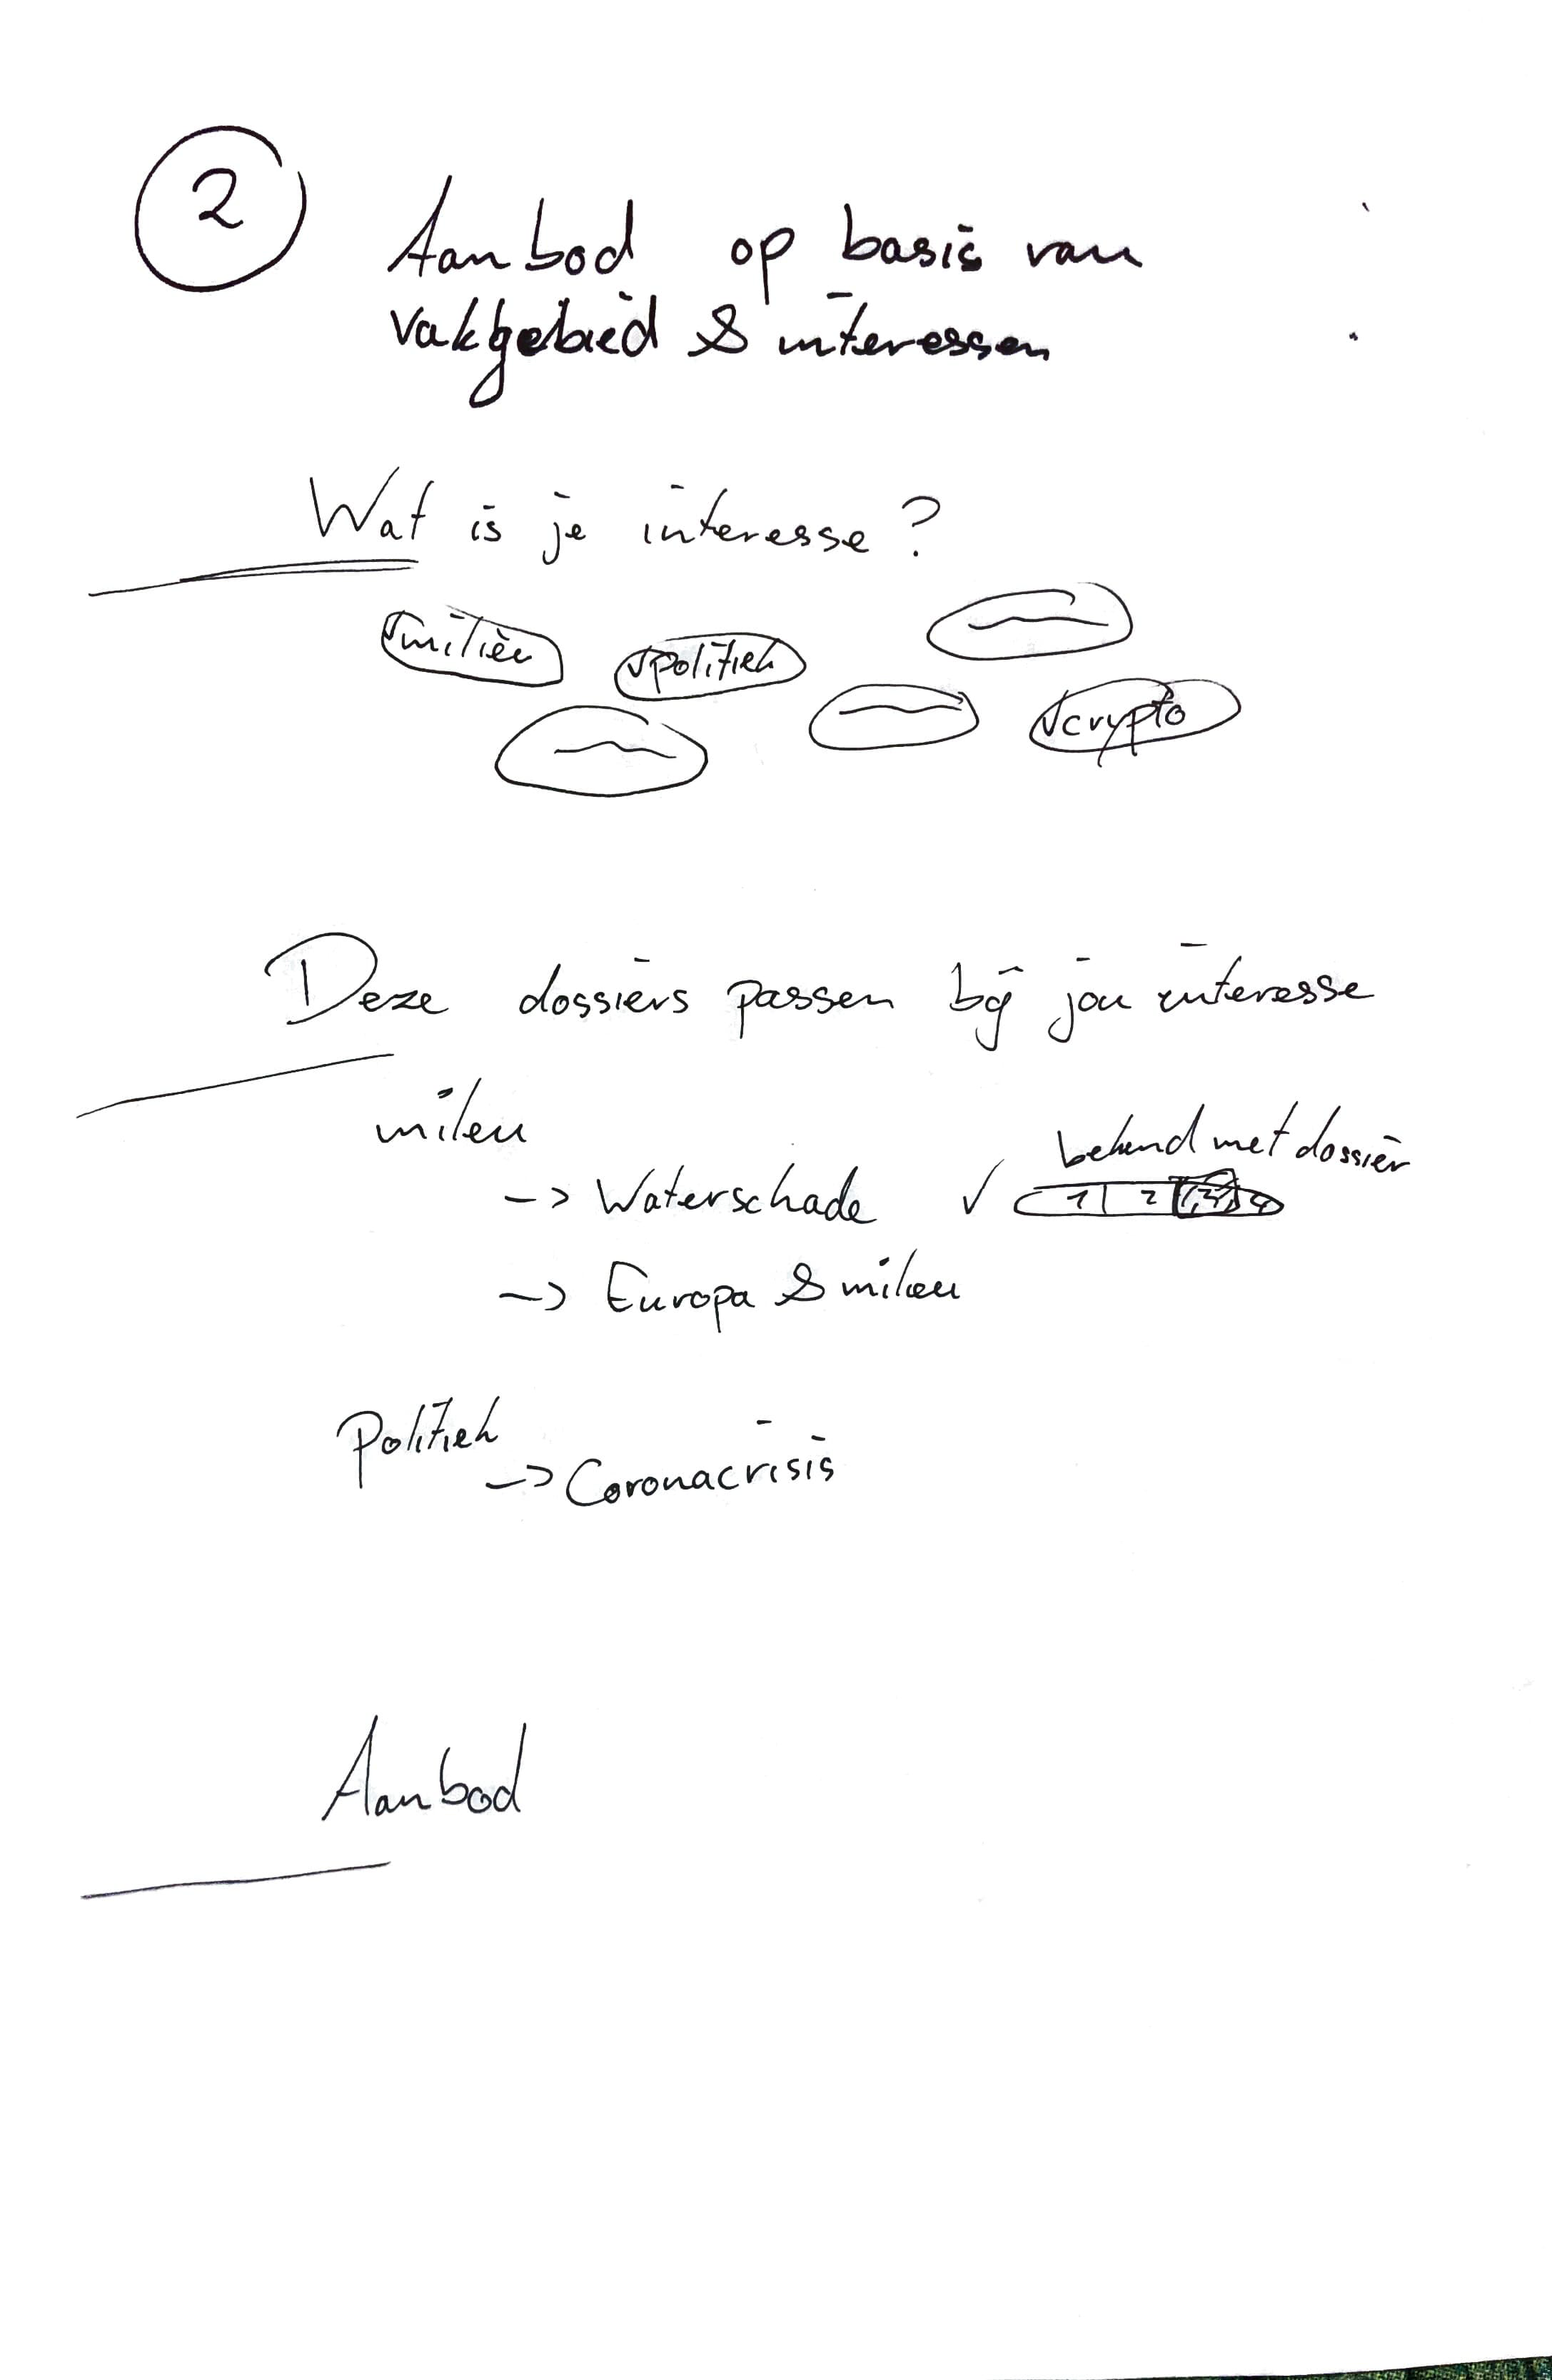 2
Aanbod op basis van
vakgebied & interessen
Wat is je interesse?
✓milieu ✓politiek
✓crypto
Deze dossiers passen bij jou interesse
milieu
bekend met dossier
-> Waterschade ✓ 1 2 3 4
-> Europa & milieu
Politiek
-> Coronacrisis
Aanbod